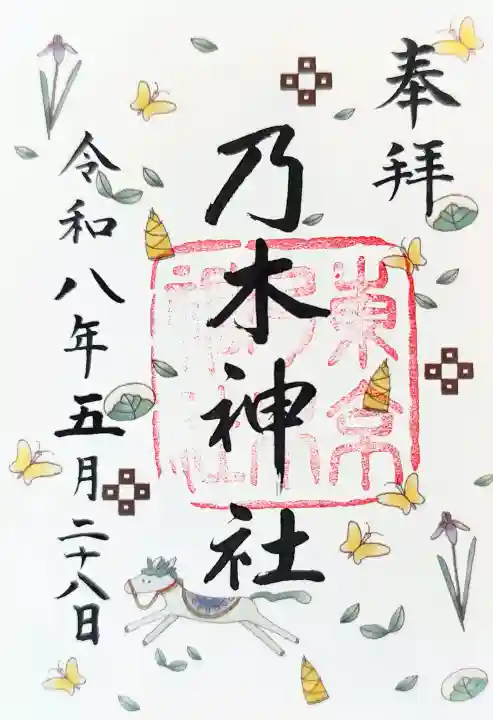 奉拝
乃木神社
東京
乃木
神社
令和八年五月二十八日